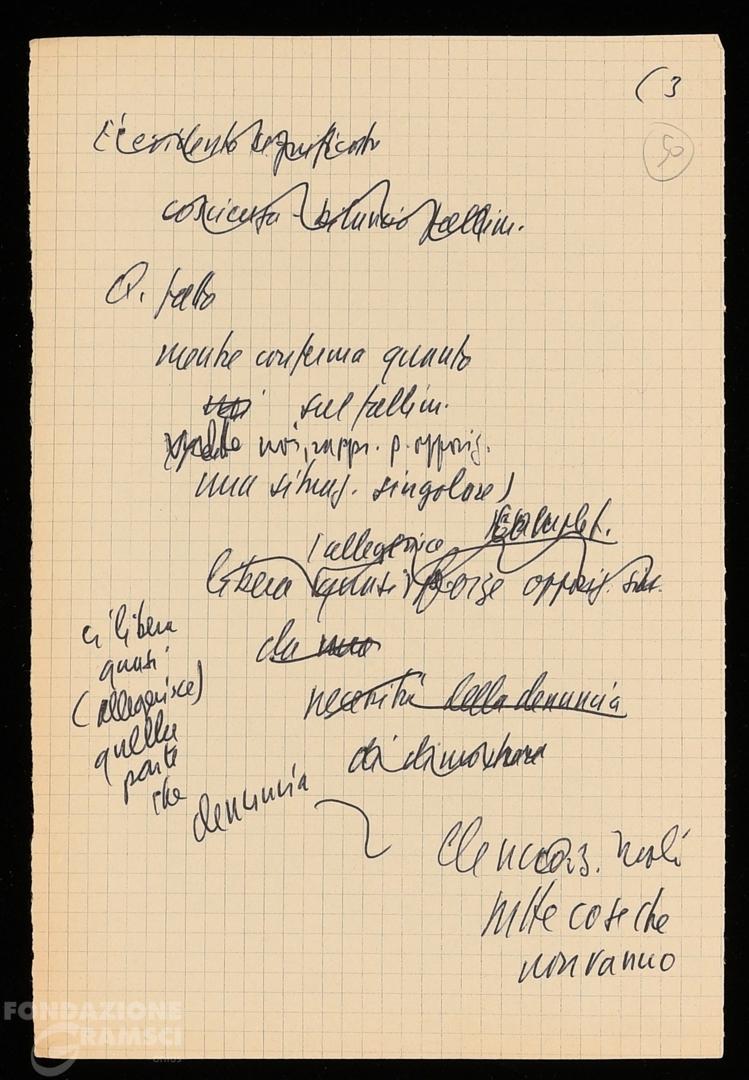 (3
50
E' evidente significato
coscienza - bilancio fallim.
Q. fatto
mentre conferma quanto
noi sul fallim.
noi, rappr. p. opposiz.
una situaz. singolare)
(allegerisce
libera (quasi) forze opposiz. sin.
da una
necessità della denuncia
di dimostrare
ci libera
quasi
(allegerisce)
quella
parte
che
denuncia
elencaz.
tutte cose che
non vanno
FONDAZIONE
GRAMSCI
ONLUS